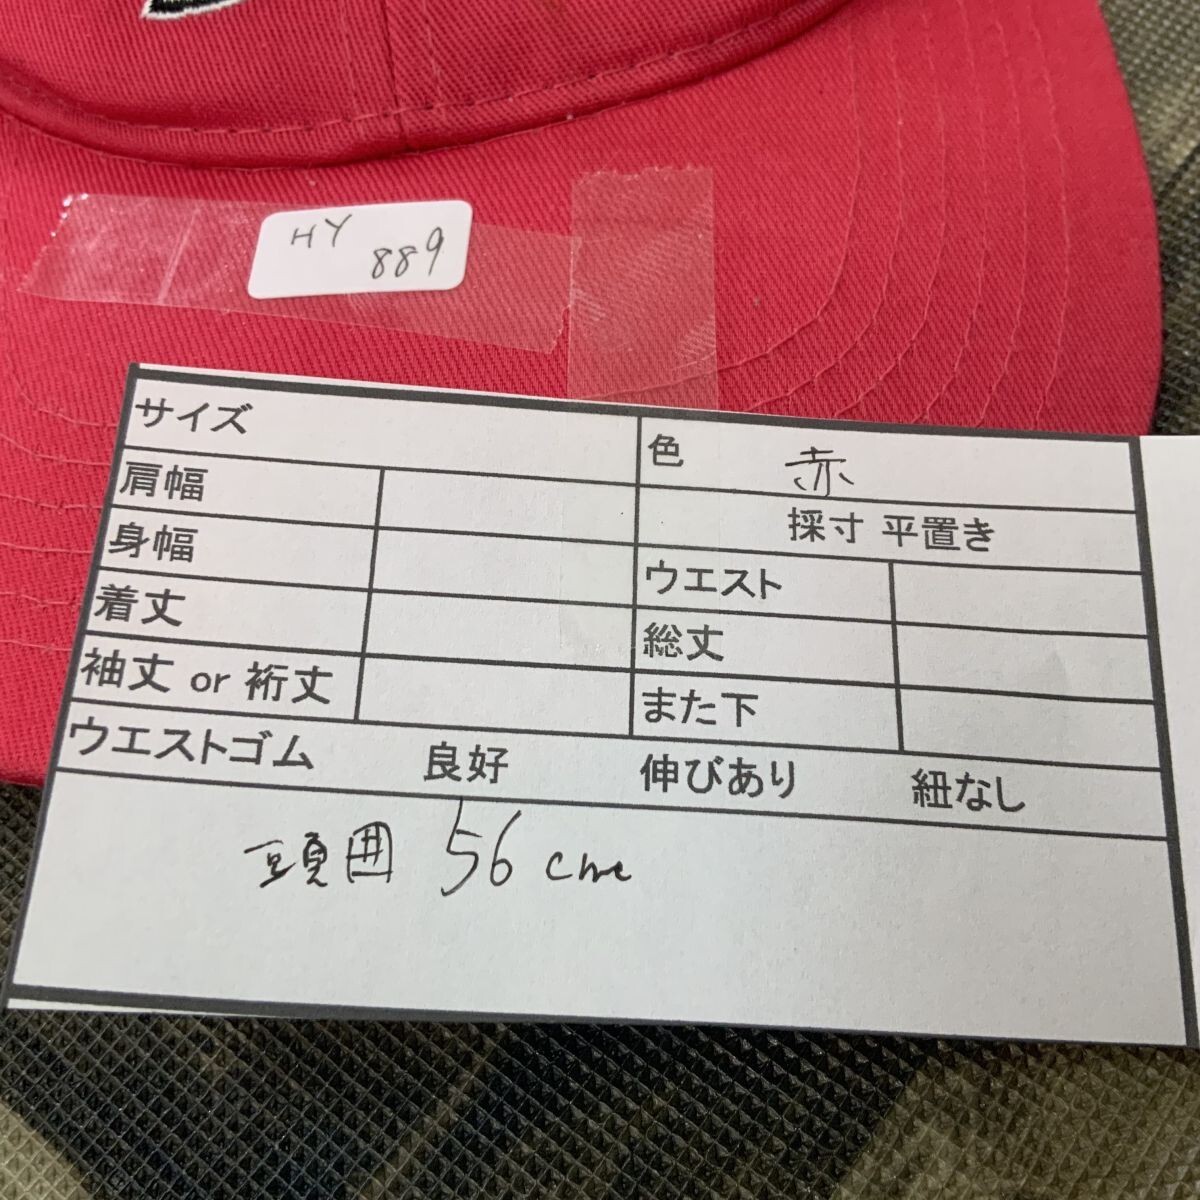 HY
889
サイズ
色 赤
肩幅
採寸 平置き
身幅
ウエスト
着丈
総丈
袖丈 or 裄丈
また下
ウエストゴム 良好 伸びあり 紐なし
頭囲 56cm